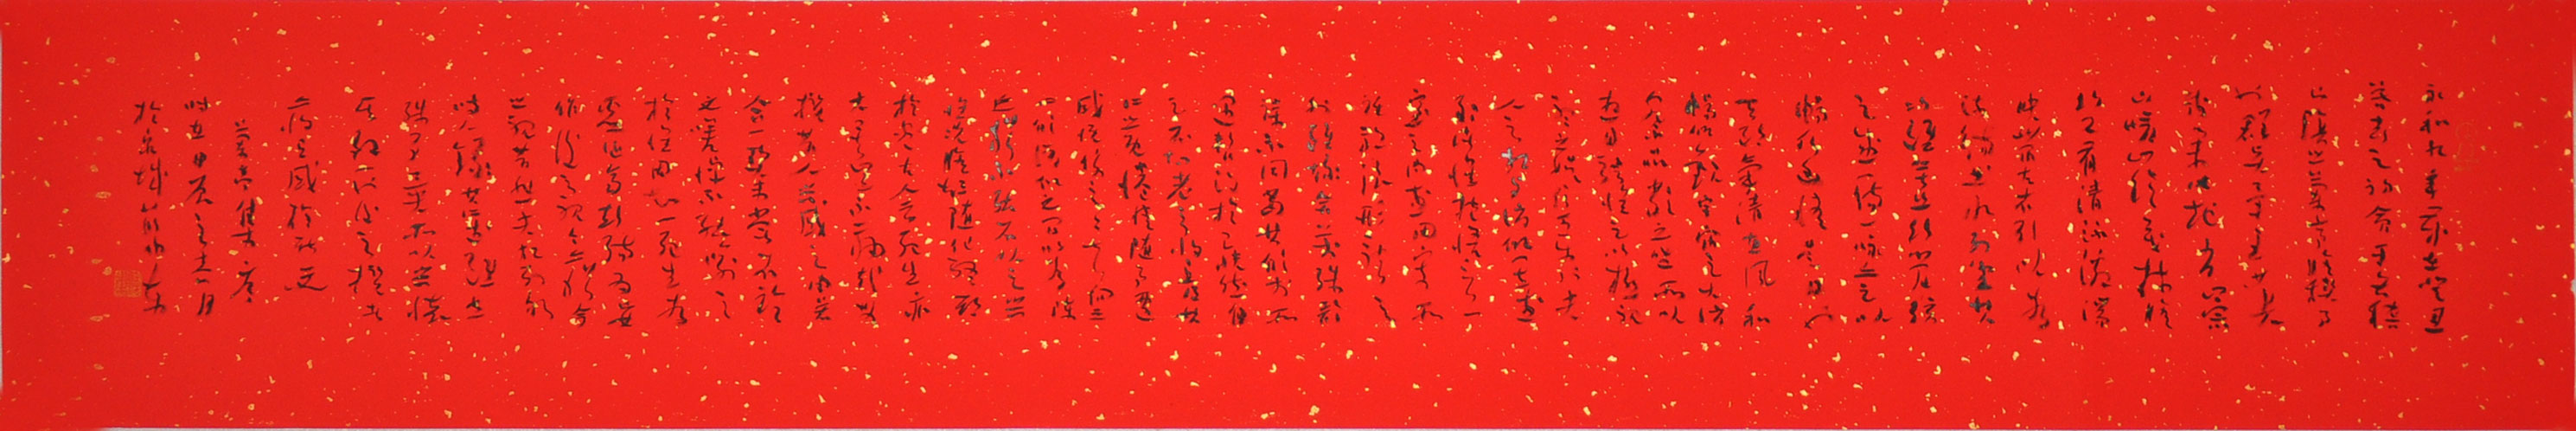 永和九年歲在癸丑
暮春之初會于會稽
山陰之蘭亭脩稧事
也群賢畢至少長
咸集此地有崇
山峻領茂林脩
竹又有清流激湍
映帶左右引以為
流觴曲水列坐其
次雖無絲竹管弦
之盛一觴一詠亦足以
暢敘幽情是日也
天朗氣清惠風和
暢仰觀宇宙之大俯
察品類之盛所以
遊目騁懷足以極視
聽之娛信可樂也夫
人之相與俯仰一世或
取諸懷抱悟言一
室之內或因寄所
託放浪形骸之
外雖趣舍萬殊靜
躁不同當其欣於所
遇暫得於己快然自
足不知老之將至及其
所之既倦情隨事遷
感慨係之矣向之
所欣俛仰之間以為陳
迹猶不能不以之興
懷況脩短隨化終期
於盡古人云死生亦
大矣豈不痛哉每
攬昔人興感之由若
合一契未嘗不臨
文嗟悼不能喻之
於懷固知一死生為
虛誕齊彭殤為妄
作後之視今亦猶今
之視昔悲夫故列敘
時人錄其所述雖世
殊事異所以興懷
其致一也後之攬者
亦將有感於斯文
蘭亭集序
時在甲辰之
於泉城